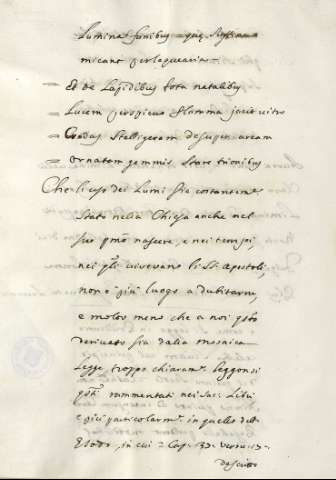 Lumina funibus quę
micant per laquearia
Et de Lapidibus tota natalibus
Lucem perspicuo flamma jacit vitro
Credas Stelligeram desuper aream
Ornatam gemmis Stare trionibus
Che l'uso dei Lumi sia costantem.e
Stato nella Chiesa anche nel
suo pmo nascere, e nei tempi,
nei qli vivevano li SS. Apostoli
non è più luogo a dubitarne,
e molto meno che a noi qsto
derivato sia dalla mosaica
Legge troppo chiaram.e leggonsi
qsti rammentati nei Sac. Libri
e più particolarm.e in quello dell'
Esodo, in cui